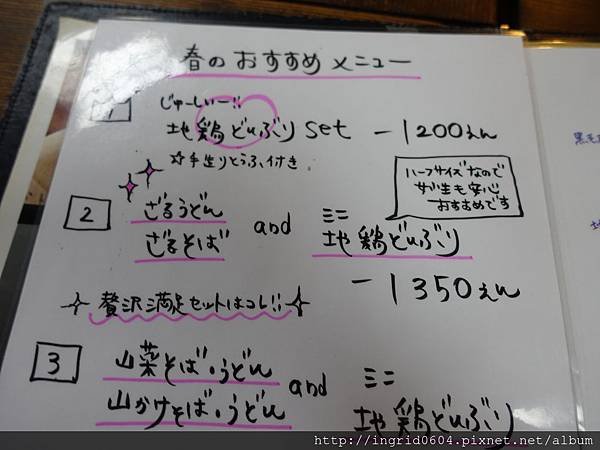 春のおすすめメニュー
1
じゅーしぃー!!
地鶏どんぶり set －1200えん
☆手造りとうふ付き
ハーフサイズなので
も安心
おすすめです
2
ざるうどん
ざるそば
and
ミニ
地鶏どんぶり
－1350えん
贅沢満足セットはコレ!!
3
山菜そば・うどん
山かけそば・うどん
and
ミニ
地鶏どんぶり
黒毛
地
http://ingrid0604.pixnet.net/album